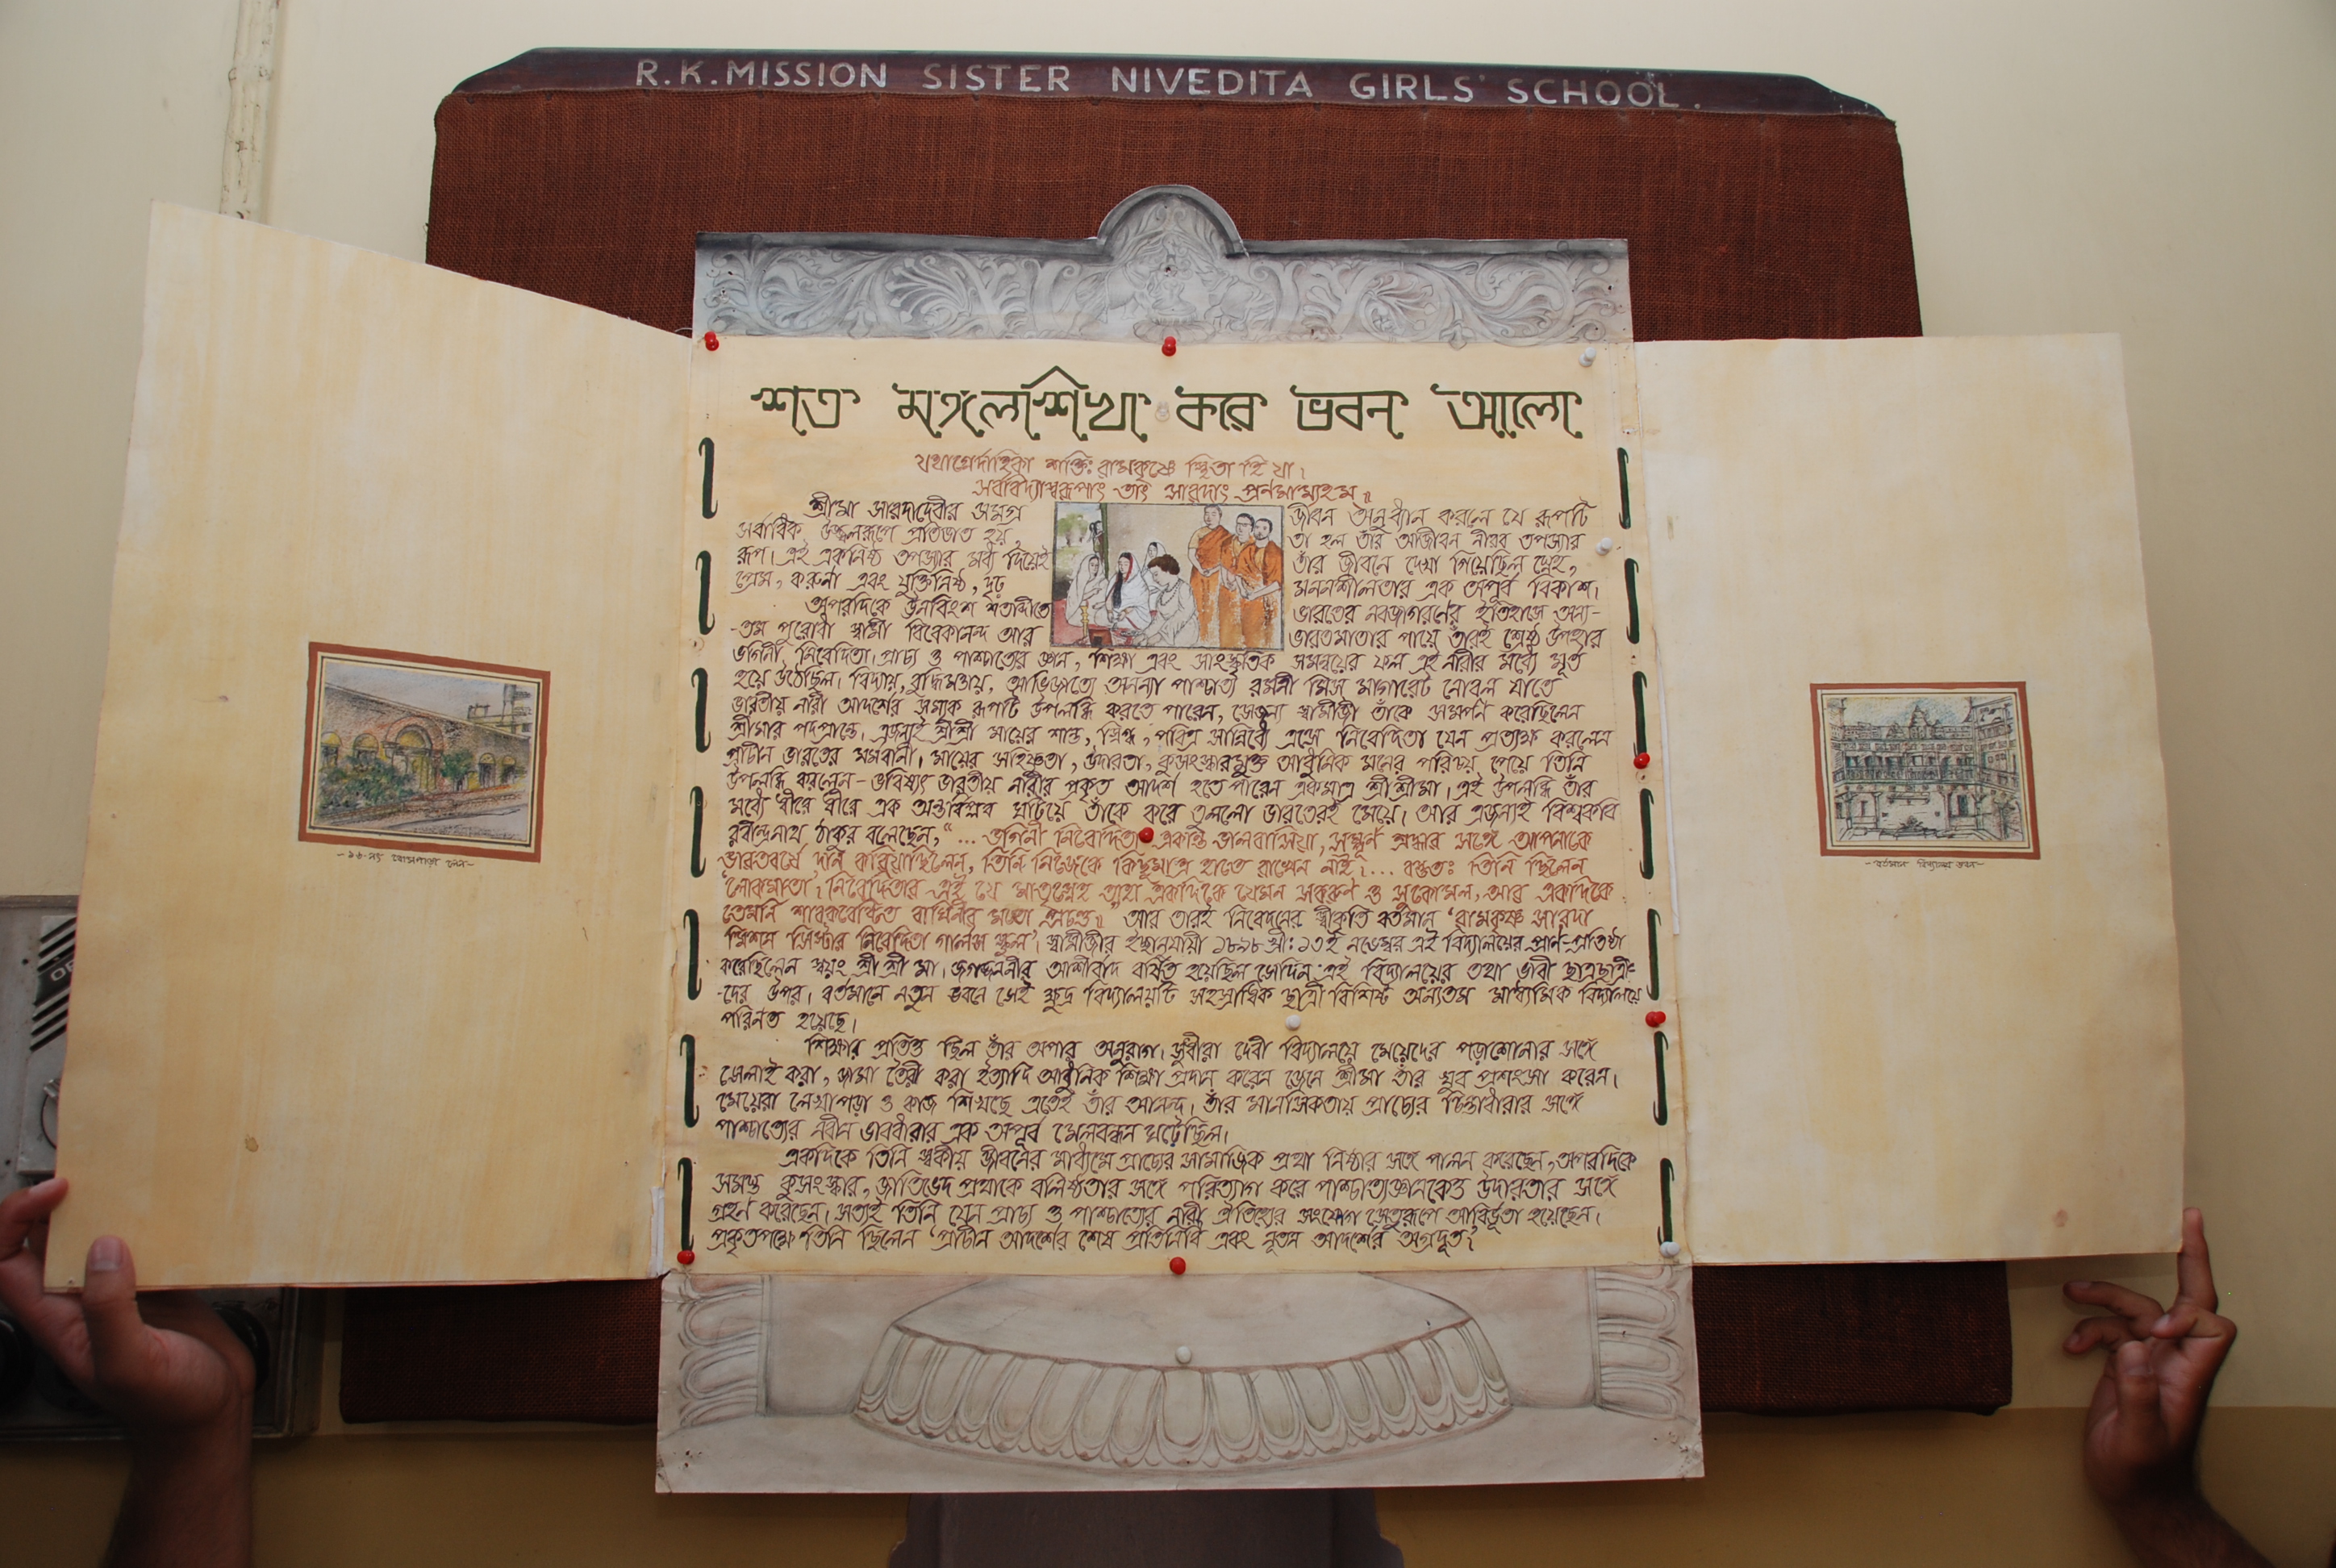 R.K.MISSION SISTER NIVEDITA GIRLS' SCHOOL.
শত মঙ্গলশিখা করে ভবন আলো
যথাগ্নের্দাহিকা শক্তিঃ রামকৃষ্ণে স্থিতা হি যা।
সর্ববিদ্যাস্বরূপাং তাং সারদাং প্রণমাম্যহম্॥
শ্রীমা সারদাদেবীর সমগ্র জীবন অনুধ্যান করলে যে রূপটি
সর্বাধিক উজ্জ্বলরূপে প্রতিভাত হয়, তা হল তাঁর আজীবন নীরব তপস্যার
রূপ। এই একনিষ্ঠ তপস্যার মধ্য দিয়েই তাঁর জীবনে দেখা গিয়েছিল স্নেহ,
প্রেম, করুণা এবং যুক্তিনিষ্ঠ, দৃঢ় মননশীলতার এক অপূর্ব বিকাশ।
অপরদিকে ঊনবিংশ শতাব্দীতে ভারতের নবজাগরণের ইতিহাসে অন্য-
-তম পুরোধা স্বামী বিবেকানন্দ আর ভারতমাতার পায়ে তাঁরই শ্রেষ্ঠ উপহার
ভগিনী নিবেদিতা। প্রাচ্য ও পাশ্চাত্যের জ্ঞান, শিক্ষা এবং সাংস্কৃতিক সমন্বয়ের ফল এই নারীর মধ্যে মূর্ত
হয়ে উঠেছিল। বিদ্যায়, বুদ্ধিমত্তায়, আভিজাত্যে অনন্যা পাশ্চাত্য রমণী মিস মার্গারেট নোবল যাতে
ভারতীয় নারী আদর্শের সম্যক রূপটি উপলব্ধি করতে পারেন, সেজন্য স্বামীজী তাঁকে সমর্পণ করেছিলেন
শ্রীমার পদপ্রান্তে। এজন্যই শ্রীশ্রী মায়ের শান্ত, স্নিগ্ধ, পবিত্র সান্নিধ্যে এসে নিবেদিতা যেন প্রত্যক্ষ করলেন
প্রাচীন ভারতের মর্মবাণী। মায়ের সহিষ্ণুতা, উদারতা, কুসংস্কারমুক্ত আধুনিক মনের পরিচয় পেয়ে তিনি
উপলব্ধি করলেন - ভবিষ্যৎ ভারতীয় নারীর প্রকৃত আদর্শ হতে পারেন একমাত্র শ্রীশ্রীমা। এই উপলব্ধি তাঁর
মধ্যে ধীরে ধীরে এক অন্তর্বিপ্লব ঘটিয়ে তাঁকে করে তুললো ভারতেরই মেয়ে। আর এজন্যই বিশ্বকবি
রবীন্দ্রনাথ ঠাকুর বলেছেন, “... ভগিনী নিবেদিতা একান্ত ভালবাসিয়া, সম্পূর্ণ শ্রদ্ধার সঙ্গে আপনাকে
ভারতবর্ষে দান করিয়াছিলেন, তিনি নিজেকে কিছুমাত্র হাতে রাখেন নাই।... বস্তুতঃ তিনি ছিলেন
'লোকমাতা'। নিবেদিতার এই যে মাতৃস্নেহ তাহা একদিকে যেমন সকরুণ ও সুকোমল, আর একদিকে
তেমনি শাবকবেষ্টিত বাঘিনীর মতো প্রচণ্ড॥” আর তারই নিবেদনের স্বীকৃতি বর্তমান ‘রামকৃষ্ণ সারদা
মিশন সিস্টার নিবেদিতা গার্লস স্কুল’। স্বামীজীর ইচ্ছানুযায়ী ১৮৯৮ খ্রীঃ ১৩ই নভেম্বর এই বিদ্যালয়ের প্রাণ-প্রতিষ্ঠা
করেছিলেন স্বয়ং শ্রী শ্রী মা। জগজ্জননীর আশীর্বাদ বর্ষিত হয়েছিল সেদিন এই বিদ্যালয়ের তথা ভাবী ছাত্রছাত্রী-
-দের উপর। বর্তমানে নতুন ভবনে সেই ক্ষুদ্র বিদ্যালয়টি সহস্রাধিক ছাত্রী বিশিষ্ট অন্যতম মাধ্যমিক বিদ্যালয়ে
পরিণত হয়েছে।
শিক্ষার প্রতিও ছিল তাঁর অপার অনুরাগ। সুধীরা দেবী বিদ্যালয়ে মেয়েদের পড়াশোনার সঙ্গে
সেলাই করা, জামা তৈরী করা ইত্যাদি আধুনিক শিক্ষা প্রদান করেন জেনে শ্রীমা তাঁর খুব প্রশংসা করেন।
মেয়েরা লেখাপড়া ও কাজ শিখছে এতেই তাঁর আনন্দ। তাঁর মানসিকতায় প্রাচ্যের চিন্তাধারার সঙ্গে
পাশ্চাত্যের নবীন ভাবধারার এক অপূর্ব মেলবন্ধন ঘটেছিল।
একদিকে তিনি স্বকীয় জীবনের মাধ্যমে প্রাচ্যের সামাজিক প্রথা নিষ্ঠার সঙ্গে পালন করেছেন, অপরদিকে
সমস্ত কুসংস্কার, জাতিভেদ প্রথাকে বলিষ্ঠতার সঙ্গে পরিত্যাগ করে পাশ্চাত্যজ্ঞানকেও উদারতার সঙ্গে
গ্রহণ করেছেন। সত্যই তিনি যেন প্রাচ্য ও পাশ্চাত্যের নারী ঐতিহ্যের সংযোগ সেতুরূপে আবির্ভূতা হয়েছেন।
প্রকৃতপক্ষে তিনি ছিলেন ‘প্রাচীন আদর্শের শেষ প্রতিনিধি এবং নূতন আদর্শের অগ্রদূত’।
-১৬ নং বোসপাড়া লেন-
-বর্তমান বিদ্যালয় ভবন-